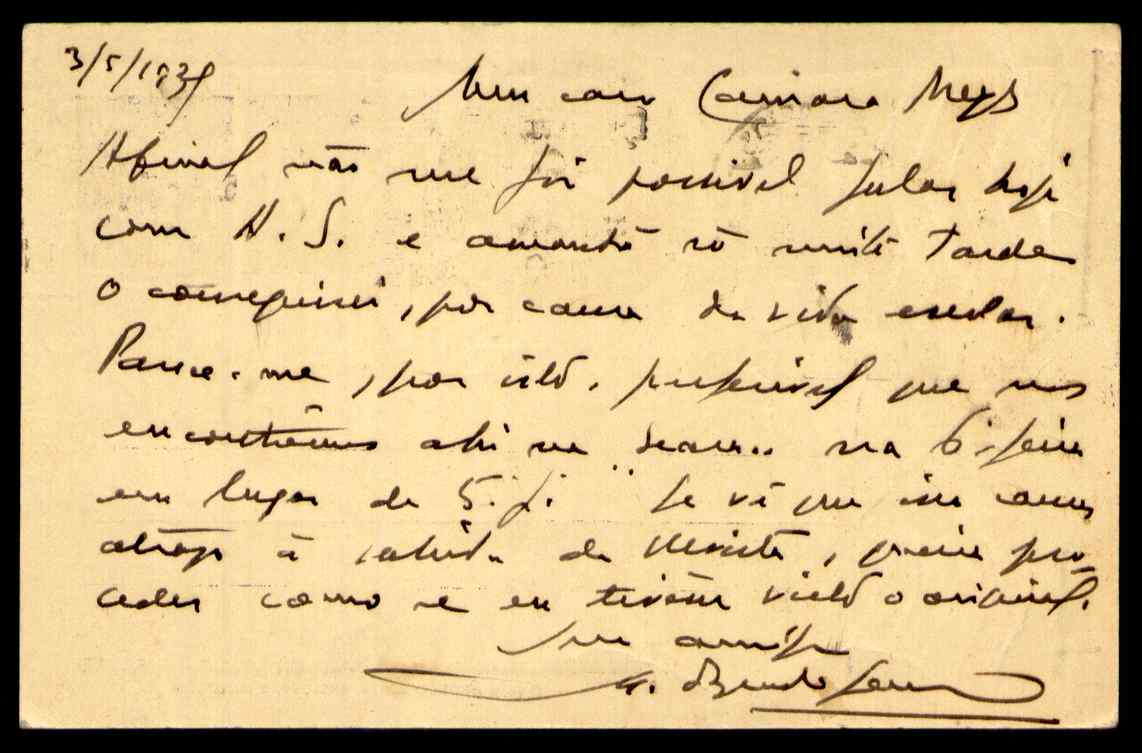 3/5/1937
Meu caro Camara Reys
Afinal não me foi possivel falar hoje
com A. S. e amanhã só muito tarde
o conseguirei, por causa da vida escolar.
Parece-me, por isso, preferivel que nos
encontrêmos ahi na Seara.. na 6ª feira
em lugar de 5.ª f. Se vê que isso causa
atrazo á sahida da Revista, queira pro-
ceder como se eu tivésse visto o original.
Seu amigo